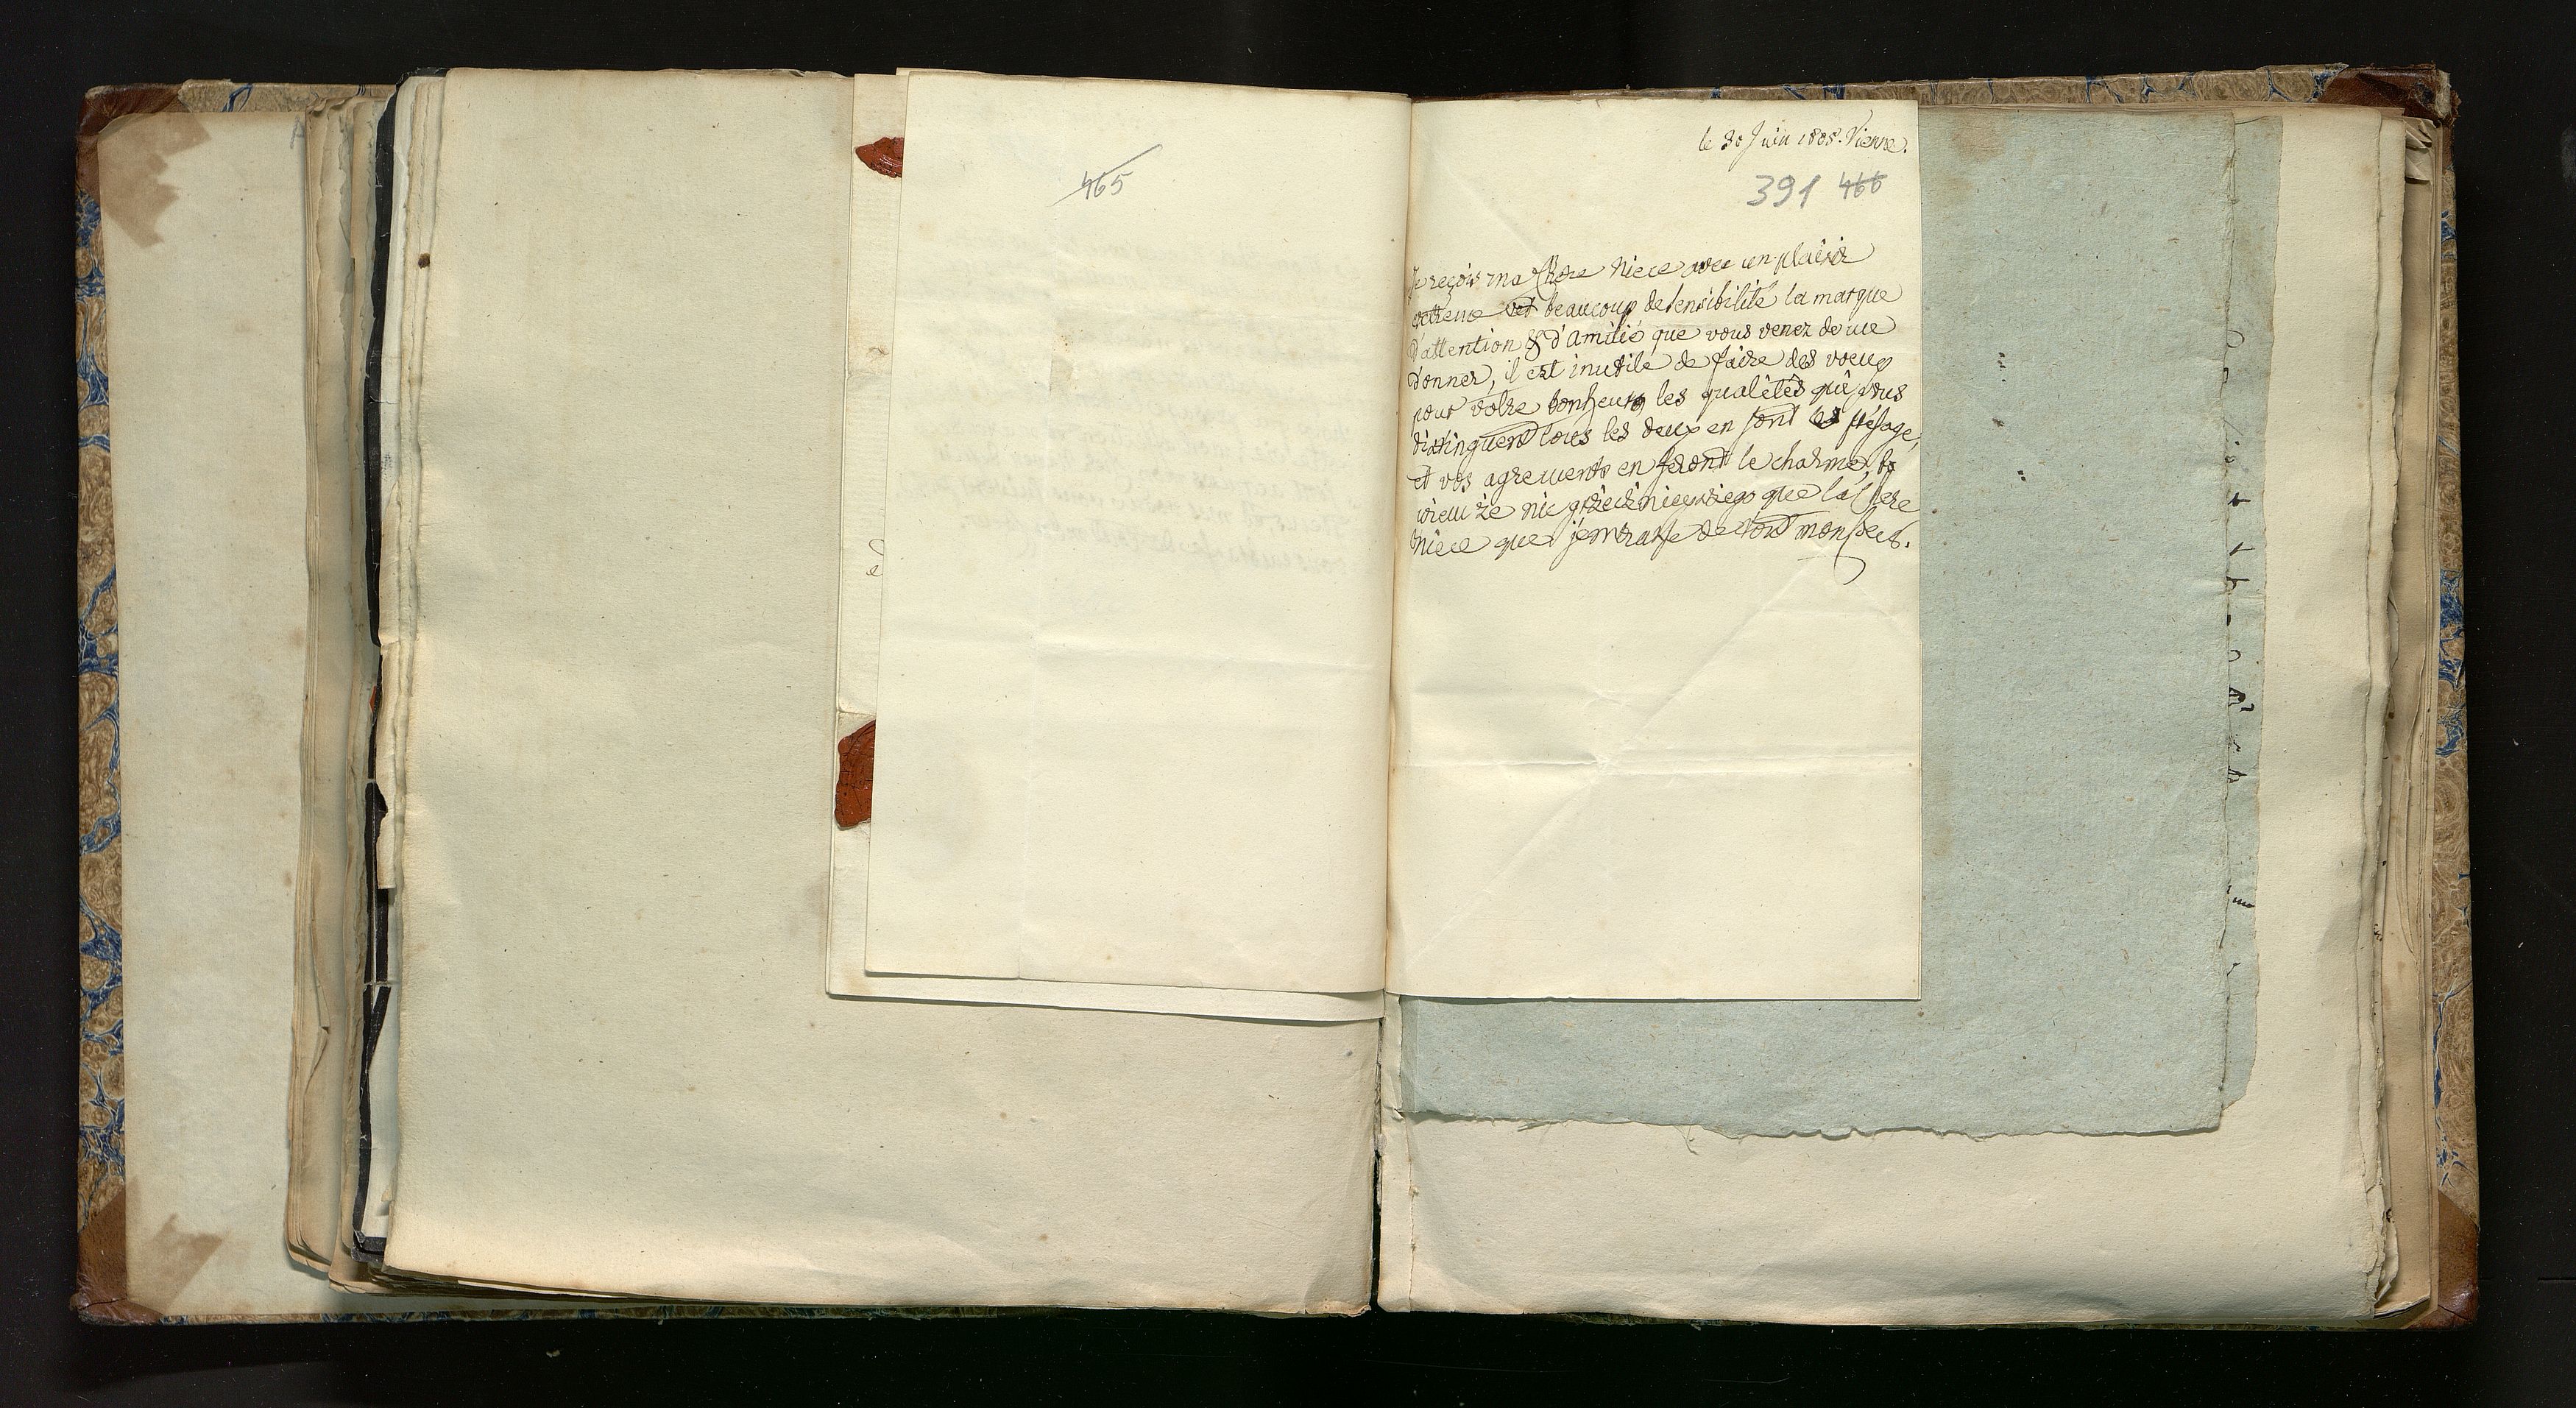 465
le 30 Juin 1805. Vienne.
391 466
Je reçois ma Chere Niece avec un plaisir
extreme et beaucoup de sensibilité la marque
d'attention & d'amitié que vous venez de me
donner, il est inutile de faire des voeux
pour votre bonheur les qualités qui vous
distinguent tous les deux en sont le présage,
et vos agrements en feront le charme, bo
wiem że nic grzeczniejszego que la Chere
Niece que j'embrasse de tout mon